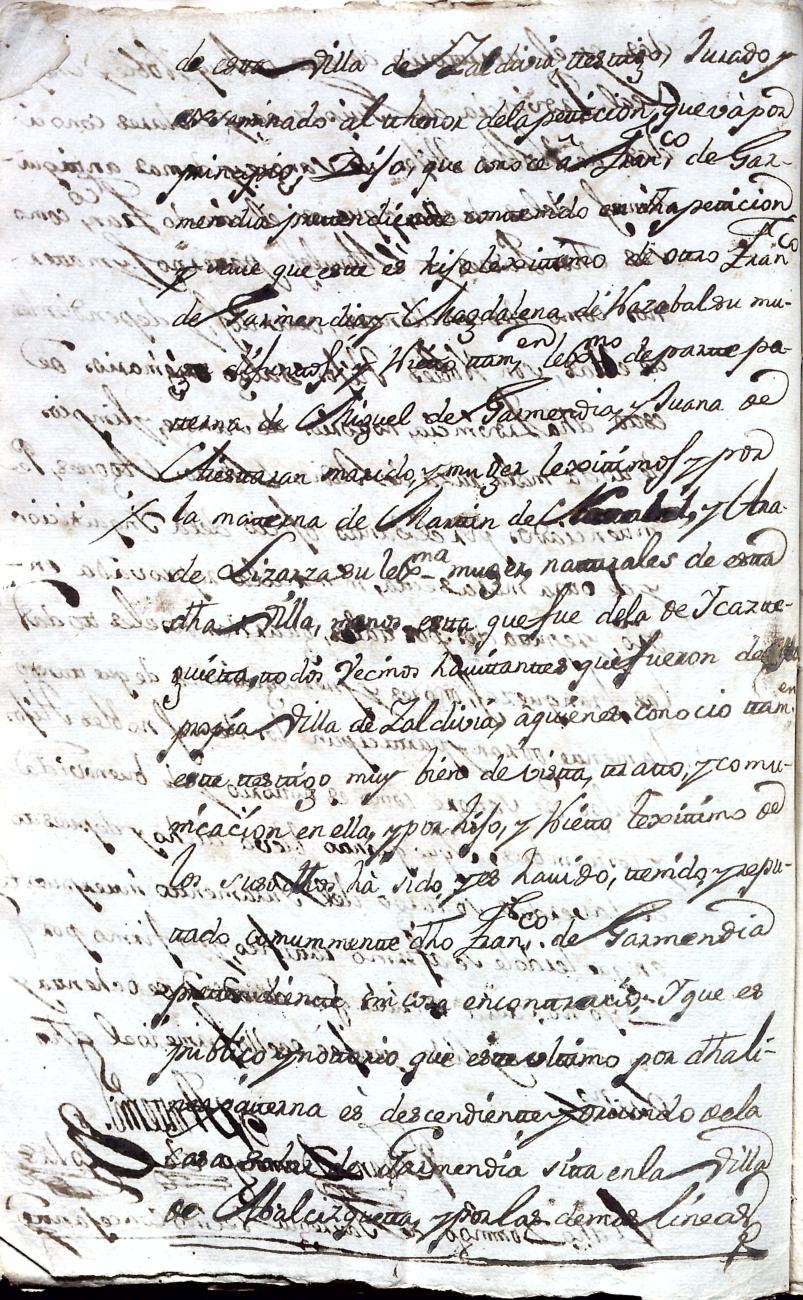 de esta Villa de Zaldivia, testigo, Jurado y
exseminado al thenor de la peticion, que và por
principio, Dijo, que conoce a Fran.co de Gar-
mendia pretendiente contenido en dha peticion
y save que este es hijo lexitimo de otro Fran.co
de Garmendia y Magdalena de Yrazabal su mu-
ger difuntos, y Nieto tam.en lexmo de parte pa-
terna de Miguel de Garmendia, y Juana de
marido, y muger lexitimos, y por
la materna de Martin de y Ana
de Lizarza su lexma muger, naturales de esta
dha Villa, menos esta que fue dela de Ycazte-
guieta, todos Vecinos havittantes que fueron de
propia Villa de Zaldivia, aquienes conocio tam.en
este testigo muy bien de vista, tratto, y comu-
nicacion en ella, y por hijo, y Nietto lexitimo de
los susodhos hà sido, y és havido, tenido, y repu-
ttado comunmente dho Fran.co de Garmendia
pretendiente sin cosa encontrario. Y que es
publico y nottorio que este ultimo por dha li-
nea paterna ès descendiente y oriundo de la
casa solar de Garmendia sitta en la Villa
de Abalcizquetta, y por las demas lineas